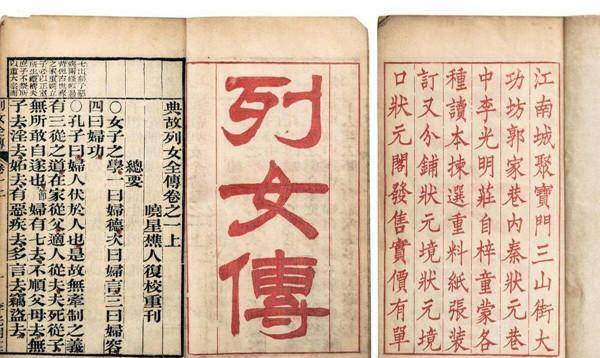 江南城聚寶門三山街大
功坊郭家巷內秦狀元巷
中李光明莊自梓童蒙各
種讀本揀選重料紙張裝
訂又分鋪狀元境狀元境
口狀元閣發售實價有單
列女傳
典故列女全傳卷之一上
曉星樵人復校重刊
總要
○女子之學一曰婦德次曰婦言三曰婦容
四曰婦功
○孔子曰婦人伏於人也是故無專制之義
有三從之道在家從父適人從夫夫死從子
無所敢自遂也婦有七去不順父母去無
子去淫去妒去有惡疾去多言去竊盜去
列女全傳